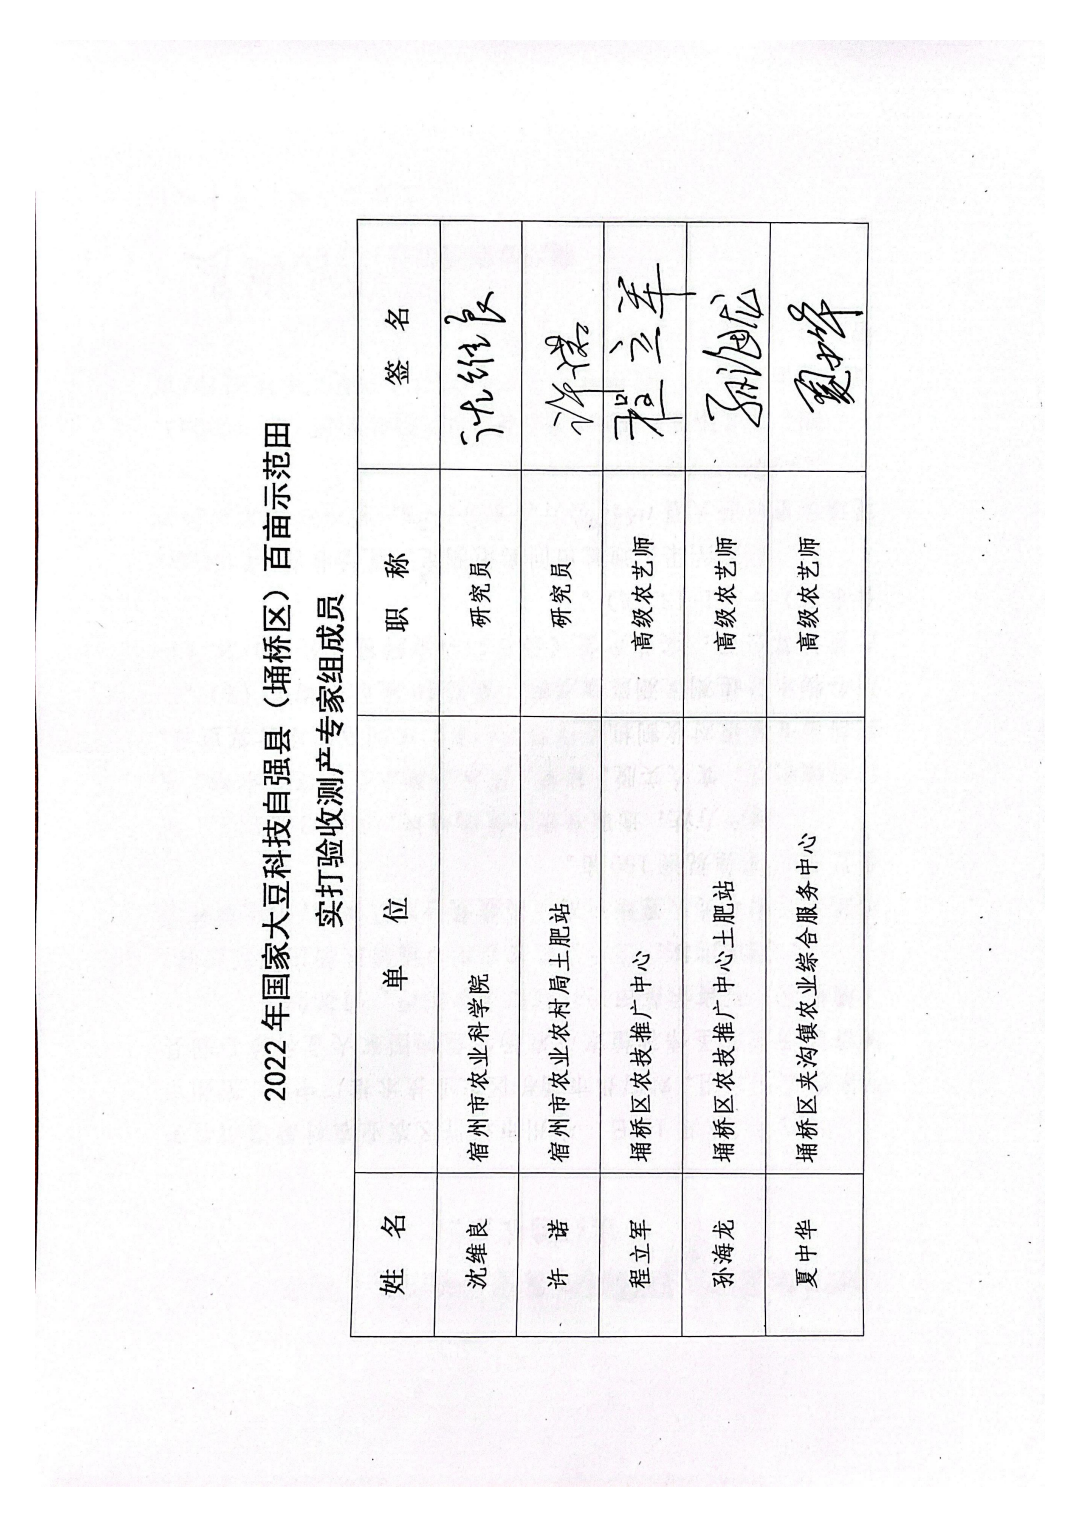 2022年国家大豆科技自强县（埇桥区）百亩示范田
实打验收测产专家组成员
姓 名 单 位 职 称 签 名
沈维良 宿州市农业科学院 研究员 沈维良
许 诺 宿州市农业农村局土肥站 研究员 许诺
程立军 埇桥区农技推广中心 高级农艺师 程立军
孙海龙 埇桥区农技推广中心土肥站 高级农艺师 孙海龙
夏中华 埇桥区夹沟镇农业综合服务中心 高级农艺师 夏中华